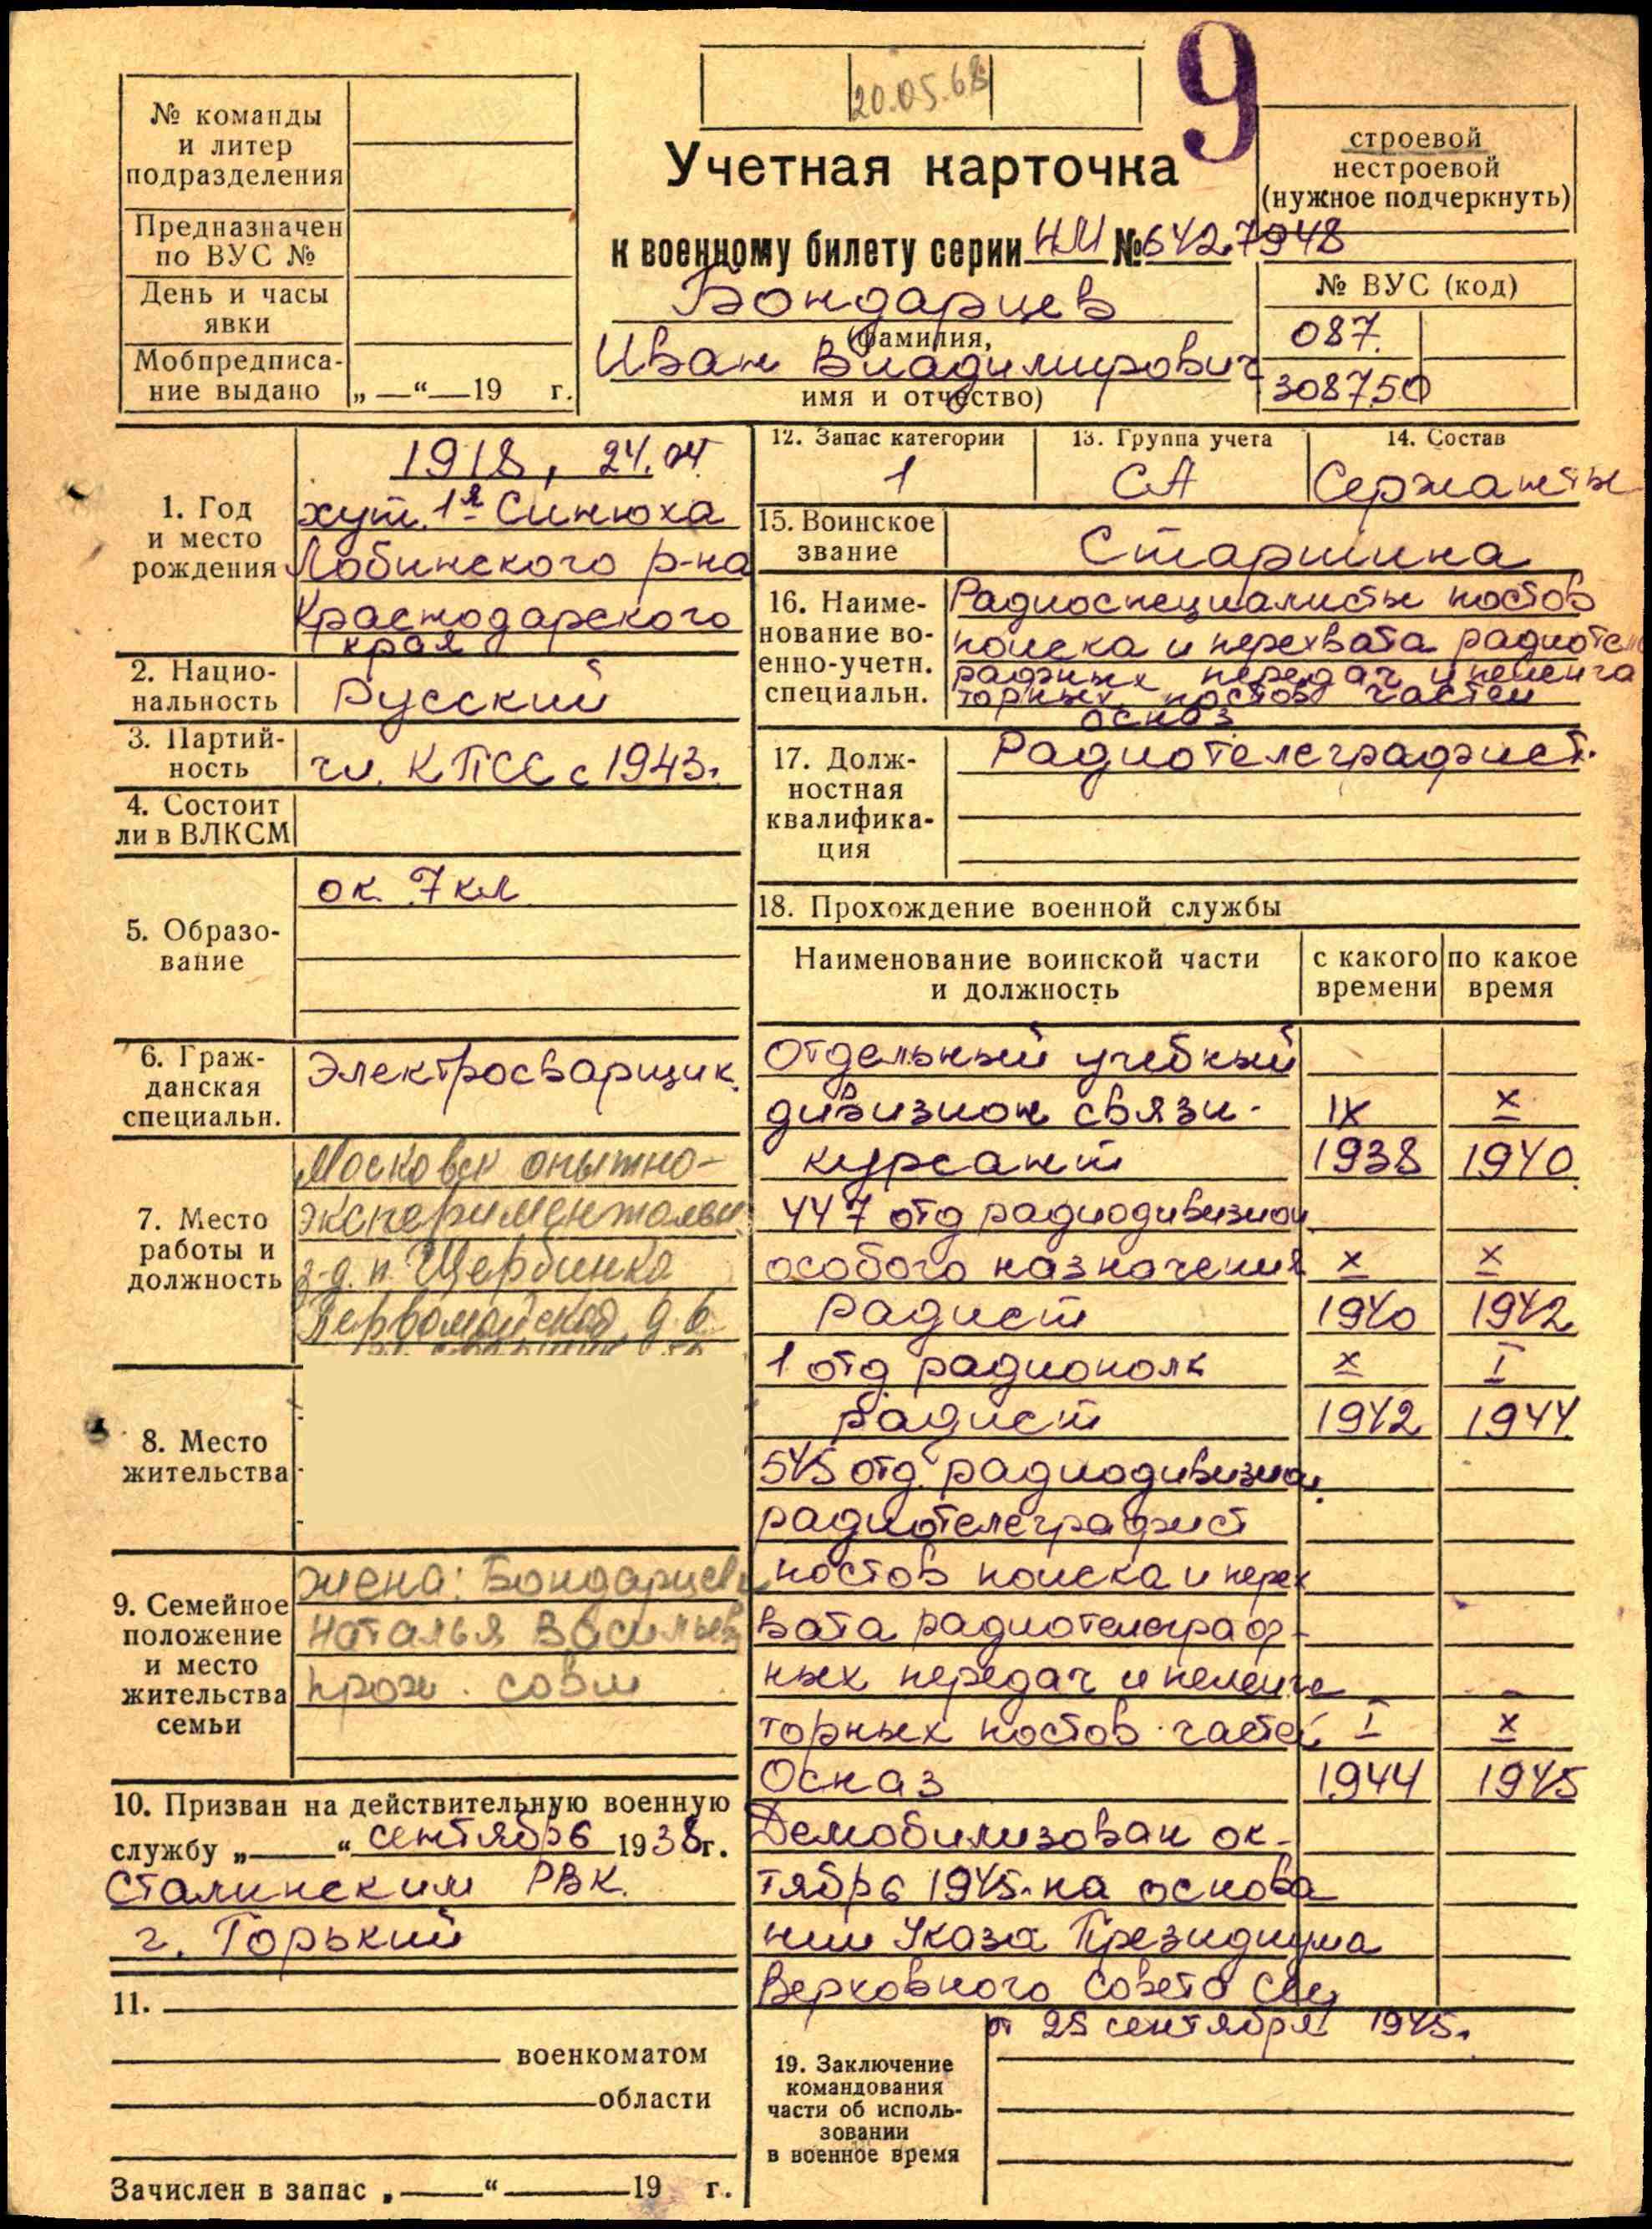 20.05.68
9
№ команды
и литер
подразделения
Предназначен
по ВУС №
День и часы
явки
Мобпредписа-
ние выдано „ — “ — 19 г.
Учетная карточка
к военному билету серии НИ № 6427948
Бондарцев
(фамилия,
Иван Владимирович
имя и отчество)
строевой
нестроевой
(нужное подчеркнуть)
№ ВУС (код)
087
308750
1. Год
и место
рождения
1918, 24.04
хут. 1я Синюха
Лабинского р-на
Краснодарского
края
2. Нацио-
нальность
Русский
3. Партий-
ность
чл. КПСС с 1943г.
4. Состоит
ли в ВЛКСМ
5. Образо-
вание
ок. 7 кл
6. Граж-
данская
специальн.
Электросварщик.
7. Место
работы и
должность
Московск опытно-
экспериментальн.
з-д. п. Щербинка
Первомайская, д 6
8. Место
жительства
9. Семейное
положение
и место
жительства
семьи
жена: Бондарцева
Наталья Васильев
прож. совм
10. Призван на действительную военную
службу „ — “ сентябрь 1938 г.
Сталинским РВК.
г. Горький
11.
военкоматом
области
Зачислен в запас „ — “ — 19 г.
12. Запас категории
1
13. Группа учета
СА
14. Состав
Сержанты
15. Воинское
звание
Старшина
16. Наиме-
нование во-
енно-учетн.
специальн.
Радиоспециалисты постов
поиска и перехвата радиотелег
рафных передач и пеленга
торных постов частей
осназ
17. Долж-
ностная
квалифика-
ция
Радиотелеграфист.
18. Прохождение военной службы
Наименование воинской части
и должность
с какого
времени
по какое
время
Отдельный учебный
дивизион связи - IX X
курсант 1938 1940
447 отд радиодивизион
особого назначения X X
радист 1940 1942
1 отд радиополк X I
радист 1942 1944
545 отд. радиодивизион
радиотелеграфист
постов поиска и перех
вата радиотелеграф-
ных передач и пеленга
торных постов частей I X
Осназ 1944 1945
Демобилизован ок-
тябрь 1945г. на основа
нии Указа Президиума
Верховного Совета СССР
от 25 сентября 1945г.
19. Заключение
командования
части об исполь-
зовании
в военное время